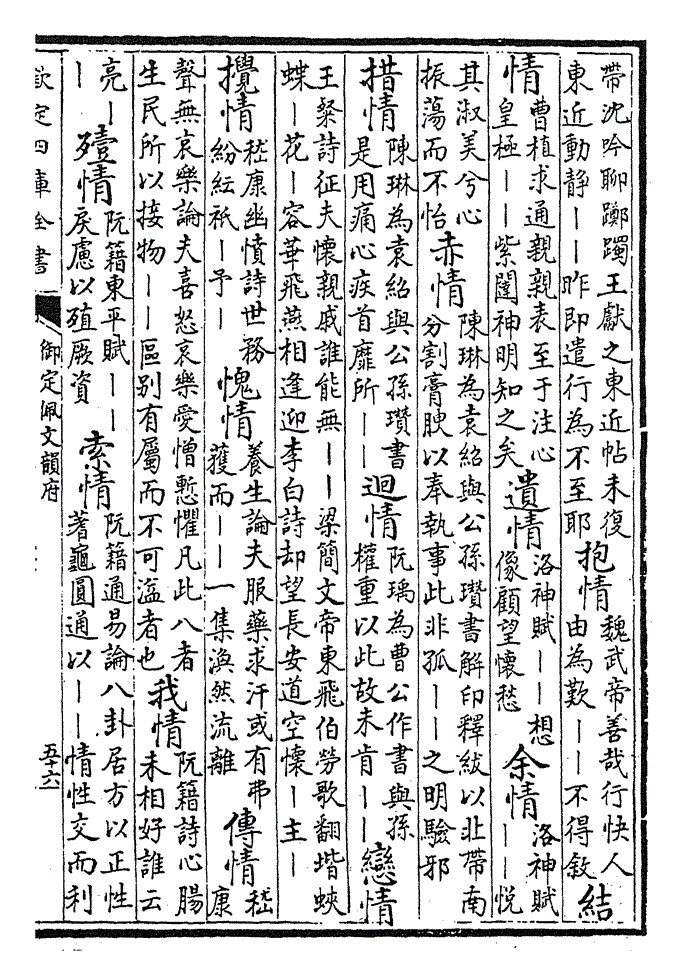 帶沈吟聊躑躅王獻之東近帖未復
東近動靜——昨即遣行為不至耶
抱情
魏武帝善哉行快人
由為歎——不得敘
結
情
曹植求通親親表至于注心
皇極——紫闥神明知之矣
遺情
洛神賦——想
像顧望懷愁
余情
洛神賦
——悅
其淑美兮心
振蕩而不怡
赤情
陳琳為袁紹與公孫瓚書解印釋紱以北帶南
分割膏腴以奉執事此非孤——之明驗邪
措情
陳琳為袁紹與公孫瓚書
是用痛心疾首靡所——
迴情
阮瑀為曹公作書與孫
權重以此故未肯——
戀情
王粲詩征夫懷親戚誰能無——梁簡文帝東飛伯勞歌翻堦蛺
蝶—花—容華飛燕相逢迎李白詩却望長安道空懷—主—
攪情
嵇康幽憤詩世務
紛紜祇—予—
愧情
養生論夫服藥求汗或有弗
獲而——一集渙然流離
傳情
嵇
康
聲無哀樂論夫喜怒哀樂愛憎慙懼凡此八者
生民所以接物——區别有屬而不可溢者也
我情
阮籍詩心腸
未相好誰云
亮—
—
殪情
阮籍東平賦——
戾慮以殖厥資
索情
阮籍通易論八卦居方以正性
蓍龜圓通以——情性交而利
欽定四庫全書
御定佩文韻府
五十六